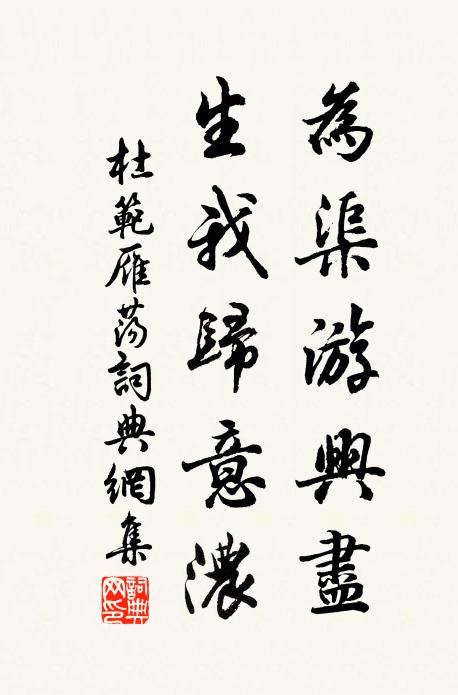 為渠游興盡
生我歸意濃
杜範雁蕩詞典網集
詞典網印